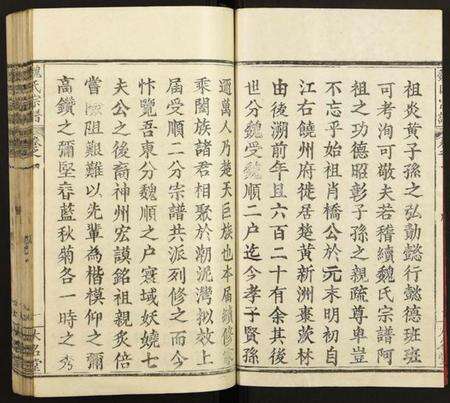 祖炎黃子孫之弘勳懿行懿德班班
可考洵可敬夫若稽續魏氏宗譜阿
祖之功德昭彰子孫之親疏尊卑豈
不忘乎始祖肖橋公於元末明初自
江右饒州府徙居楚黃新洲東茨林
由後溯前年且六百二十有餘其後
世分魏受魏順二户迄今孝子賢孫
逾萬人乃楚天巨族也本届續修
乘閤族諸君相聚於潮泥灣拟效上
届受順二分宗譜共派列修之而今
忭覽吾東分魏順之户寰域妖嬈七
夫公之後裔神州宏謨銘祖親炙倍
嘗險阻艱難以先輩為楷模仰之彌
高鑽之彌堅春藍秋菊各一時之秀
魏氏宗譜
卷之